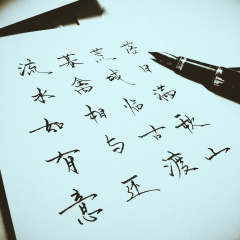 流水如有意
暮禽相与还
荒城临古渡
落日满秋山